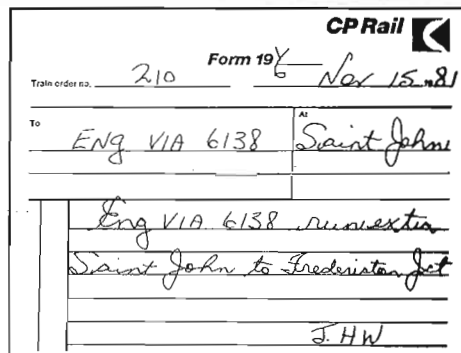 CP Rail
Form 19Y
Train order no. 210 Nov 15 81
To At
Eng VIA 6138 Saint John
Eng VIA 6138 run extra
Saint John to Fredericton Jct
J.HW